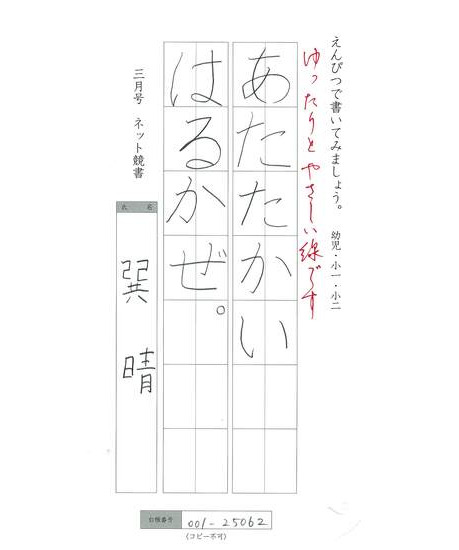 えんぴつで書いてみましょう。 幼児・小一・小二
ゆったりとやさしい線です
あたたかい
はるかぜ。
三月号 ネット競書
氏 名
巽 晴
台帳番号 001-25062
(コピー不可)